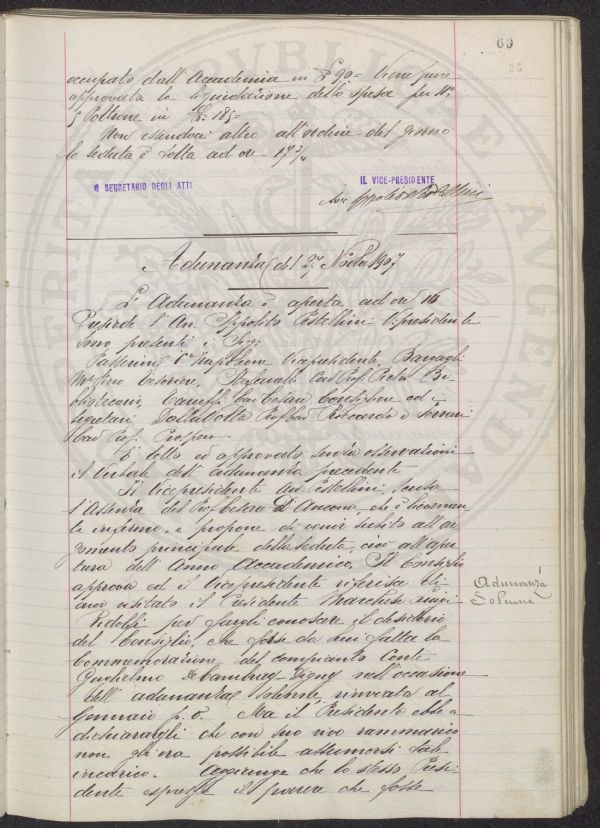 60
35
occupato dall'Accademia in £ 90= Viene pure
approvata la liquidazione della spesa per N°
5 Poltrone in £: 185=
Non essendovi altro all'ordine del giorno
la seduta è sciolta ad ore 17 3/4
IL SEGRETARIO DEGLI ATTI
IL VICE-PRESIDENTE
Avv Ippolito Pestellini
Adunanza del 27 1907
L'Adunanza è aperta ad ore 16
Presiede l'Avv. Ippolito Pestellini V. presidente
Sono presenti i Sigg.
Passerini Napoleone Vicepresidente, Bargagli
Piero Cassiere, Stefanelli Cav Prof. Pietro Bi-
bliotecario, Caruffi Cav Cesare Consigliere ed i
segretari Dalla Volta Prof Cav Riccardo e Ferrari
Cav Prof. Prospero
È letto ed approvato senza osservazioni
il Verbale dell'adunanza precedente
Il Vicepresidente Avv Pestellini, scusa
l'Assenza del Prof Cesare D'Ancona, che è
infermo, e propone di venir subito all'ar
gomento principale della seduta, cioè all'aper
tura dell'Anno Accademico. Il Consiglio
approva ed il Vicepresidente riferisce di
aver visitato il Presidente Marchese Luigi
Ridolfi per fargli conoscere il desiderio
del Consiglio, che fosse da lui fatta la
Commemorazione del compianto Conte
Guglielmo De Cambray Digny nell'occasione
dell'adunanza solenne, rinviata al
Gennaio p. v. Ma il Presidente ebbe a
dichiarargli che con suo vivo rammarico
non gli era possibile assumersi tale
incarico. Aggiunge che lo stesso Presi-
dente espresse il parere che fosse
Adunanza
Solenne